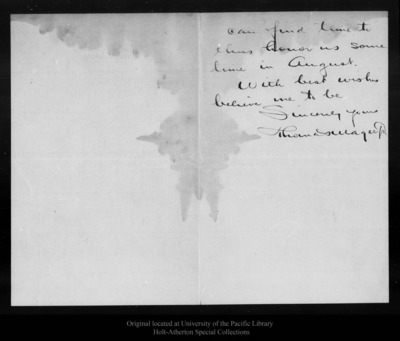 can find time to
thus honor us some
time in August.
With best wishes
believe me to be
Sincerely yours
Thomas Magee Jr
Original located at University of the Pacific Library
Holt-Atherton Special Collections